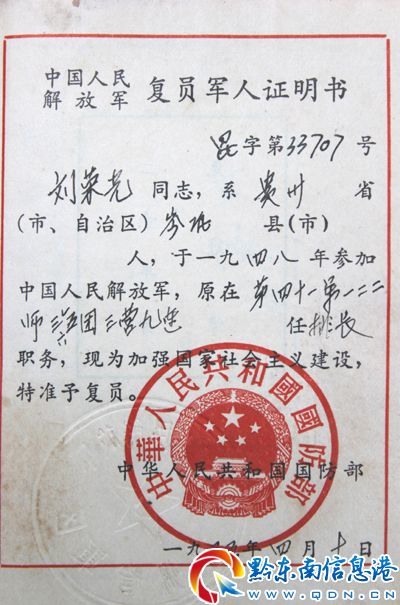 中国人民
解放军 复员军人证明书
昆字第33707号
刘荣光同志，系贵州省
(市、自治区)岑巩县(市)
人，于一九四八年参加
中国人民解放军，原在第四十一第一二二
师三六五团三营九连 任排长
职务，现为加强国家社会主义建设，
特准予复员。
中华人民共和国国防部
中華人民共和國國防部
一九 年四月十日
黔东南信息港
WWW.QDN.CN